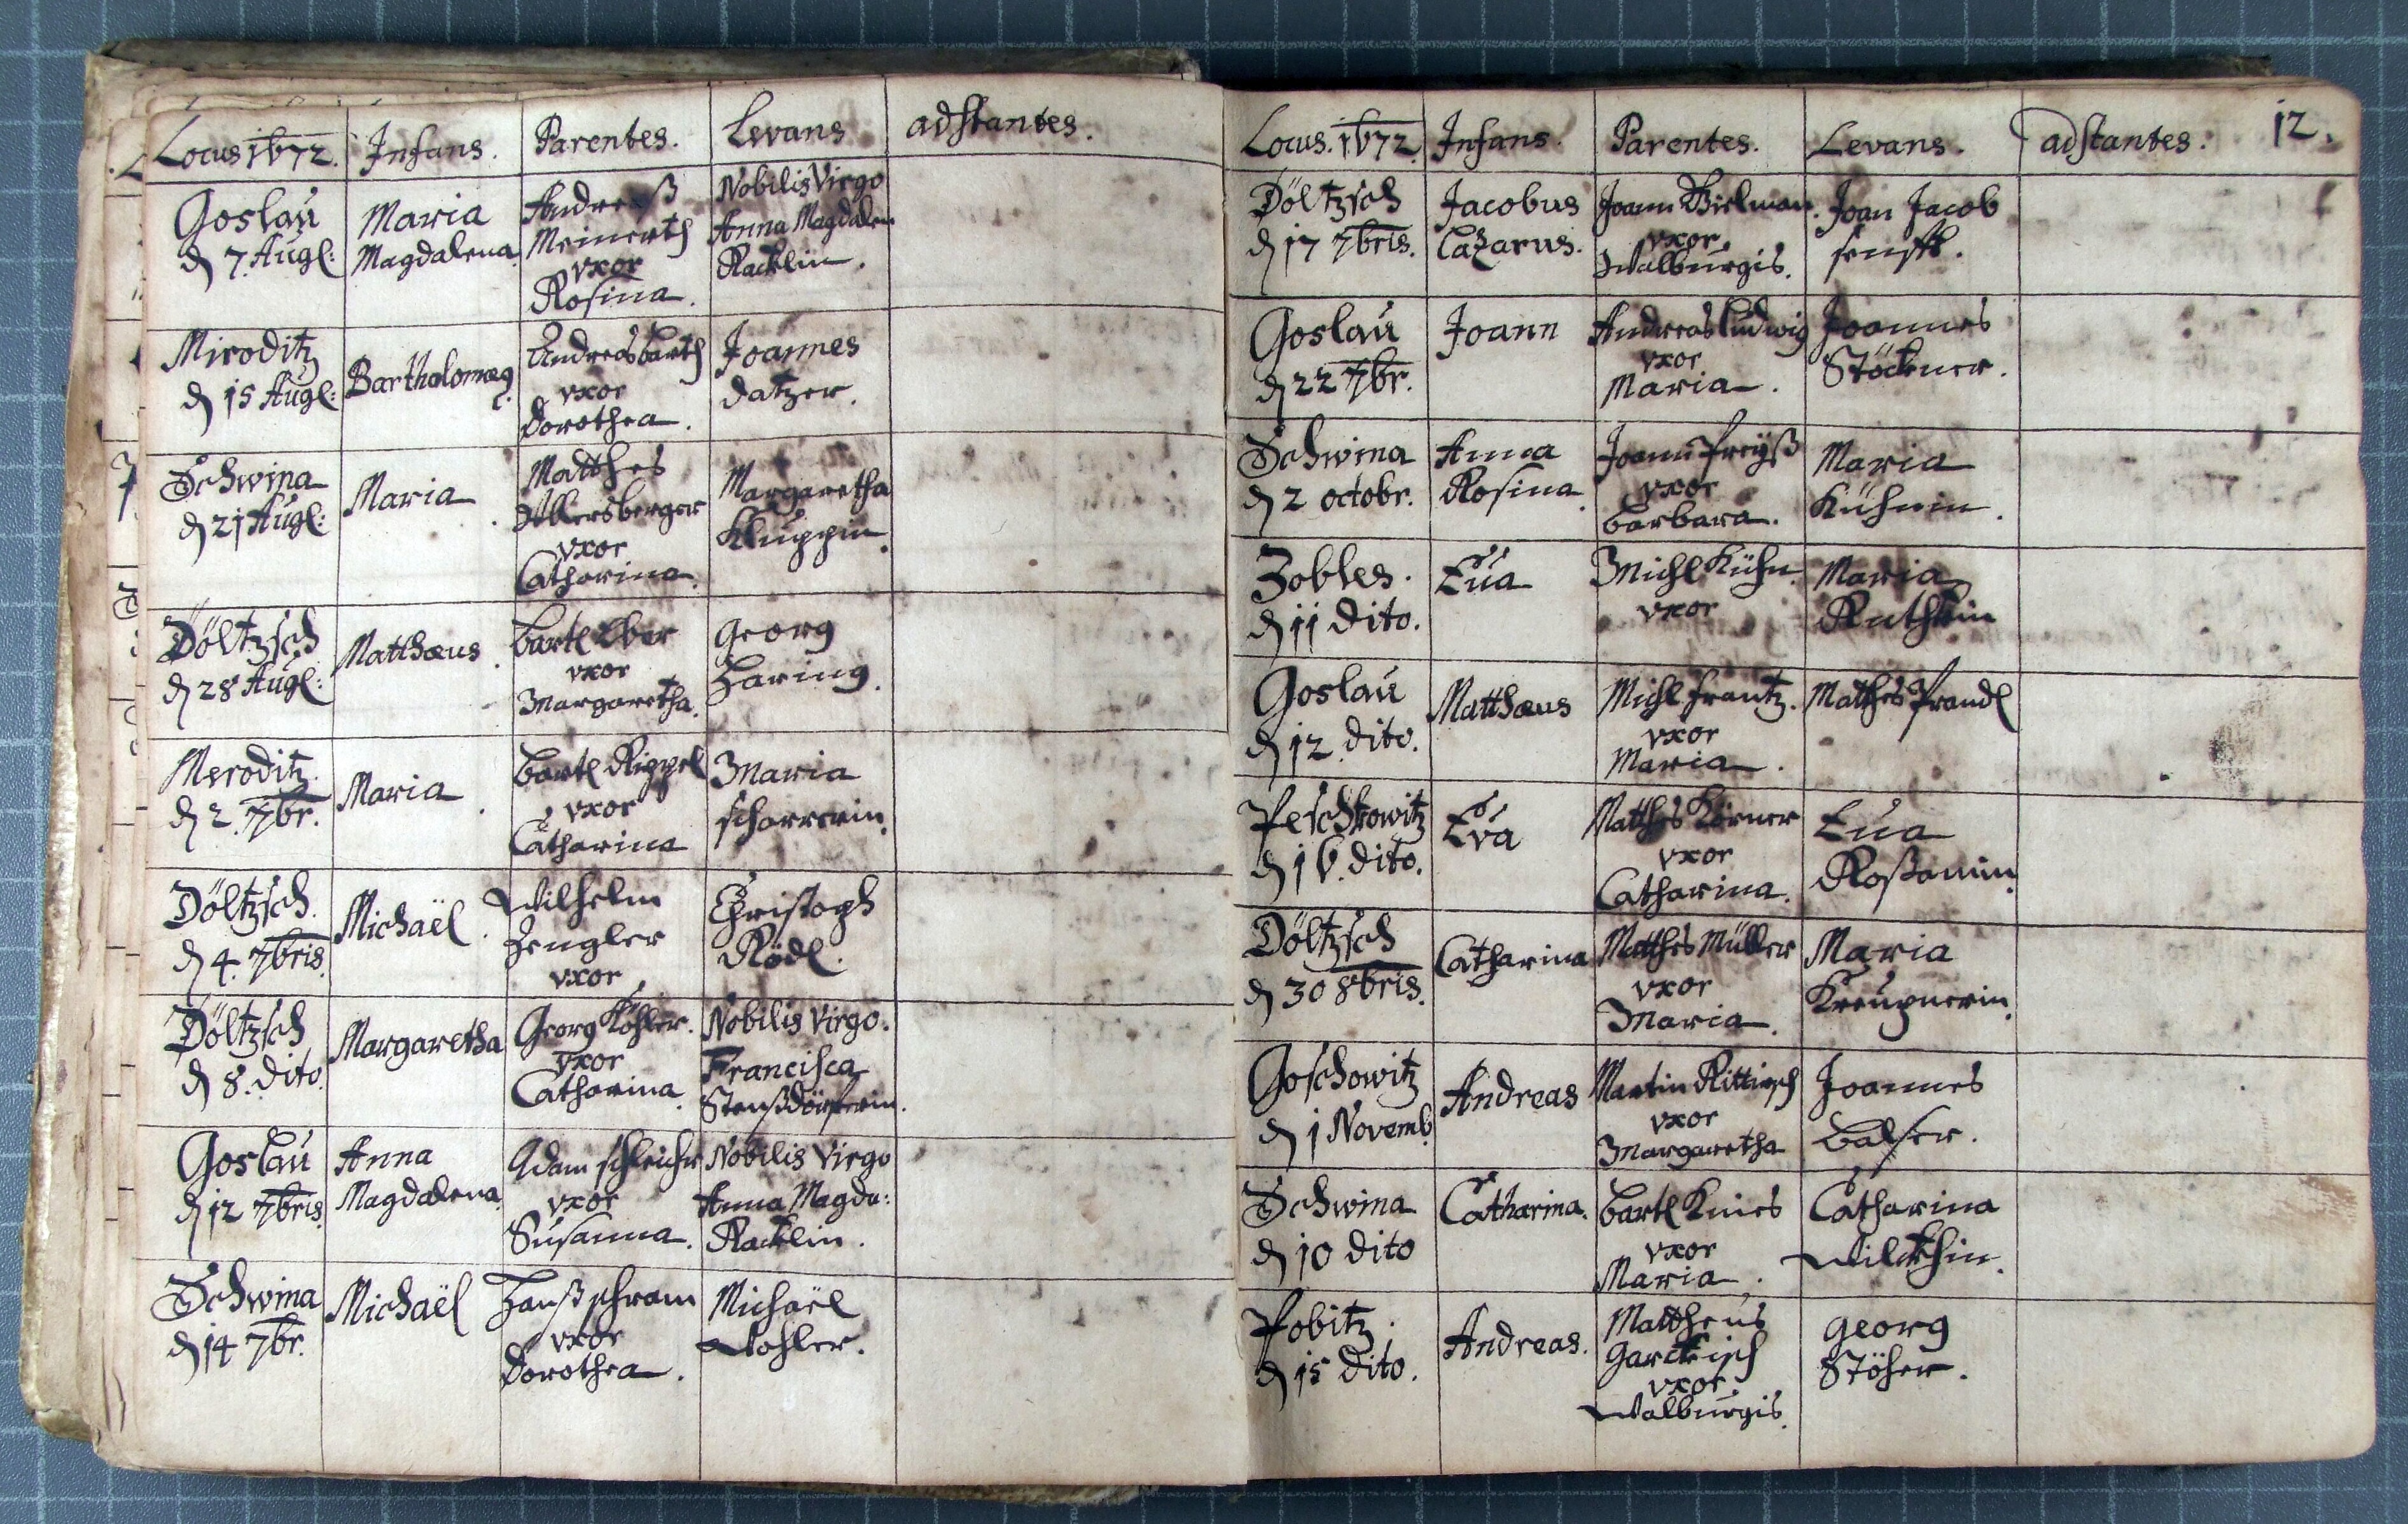 Locus 1672. Infans. Parentes. Levans adstantes.
Goslaü
d 7. Augl:
Maria
Magdalena.
Andreaß
Meinerth
vxor
Rosina.
Nobilis Virgo
Anna Magdalen
Racklin.
Miroditz
d 15 Augl:
Bartholomæg.
Andreas barth
vxor
Dorothea.
Joannes
datzer.
Schwina
d 21 Augl:
Maria.
Matthes
vxor
Catharina.
Margaretha
Kluppin.
Döltzsch
d 28 Augl:
Matthæus.
bartl Eber
vxor
Margaretha.
Georg
Haring.
Meroditz.
d 2. 7br.
Maria.
bartl Rippel
vxor
Catharina
Maria
scharrerin.
Döltzsch.
d 4. 7bris.
Michaël.
Wilhelm
Zengler
vxor
Christoph
Rödl.
Döltzsch
d 8. dito.
Margaretha
Georg Köhler.
vxor
Catharina.
Nobilis Virgo.
Francisca
Goslaü
d 12 7bris.
Anna
Magdalena.
Adam schleicher
vxor
Susanna.
Nobilis Virgo
Anna Magda:
Racklin.
Schwina
d 14 7br.
Michaël
Hanß schram
vxor
Dorothea.
Michaël
Wohler.
Locus. 1672. Infans. Parentes. Levans. adstantes. 12.
Döltzsch
d 17 7bris.
Jacobus
Lazarus.
Joann Bielman.
vxor
Walburgis.
Joan Jacob
senfft.
Goslaü
d 22 7br.
Joann
Andreas Ludwig
vxor
Maria.
Joannes
Stöckner.
Schwina
d 2 octobr.
Anna
Rosina.
Joann Preyß
vxor
barbara.
Maria
Kühnin.
Zobles.
d 11 dito.
Eua
Michl Kühn.
vxor
Maria
Goslaü
d 12 dito.
Matthæus
Michl frantz.
vxor
Maria.
Matthes Prandl
Peschkowitz
d 16. dito.
Eva
Matthes Körner
vxor
Catharina.
Eua
Roßamin.
Döltzsch
d 30 8bris.
Catharina
Matthes Müller
vxor
Maria.
Maria
Kreupnerin.
Goschowitz
d 1 Novemb.
Andreas
Martin Rittirsch
vxor
Margaretha
Joannes
balser.
Schwina
d 10 dito
Catharina.
bartl Knies
vxor
Maria.
Catharina
Wilckhin.
Pobitz.
d 15 dito.
Andreas.
Mattheus
Garckisch
vxor
Walburgis.
Georg
Stöher.